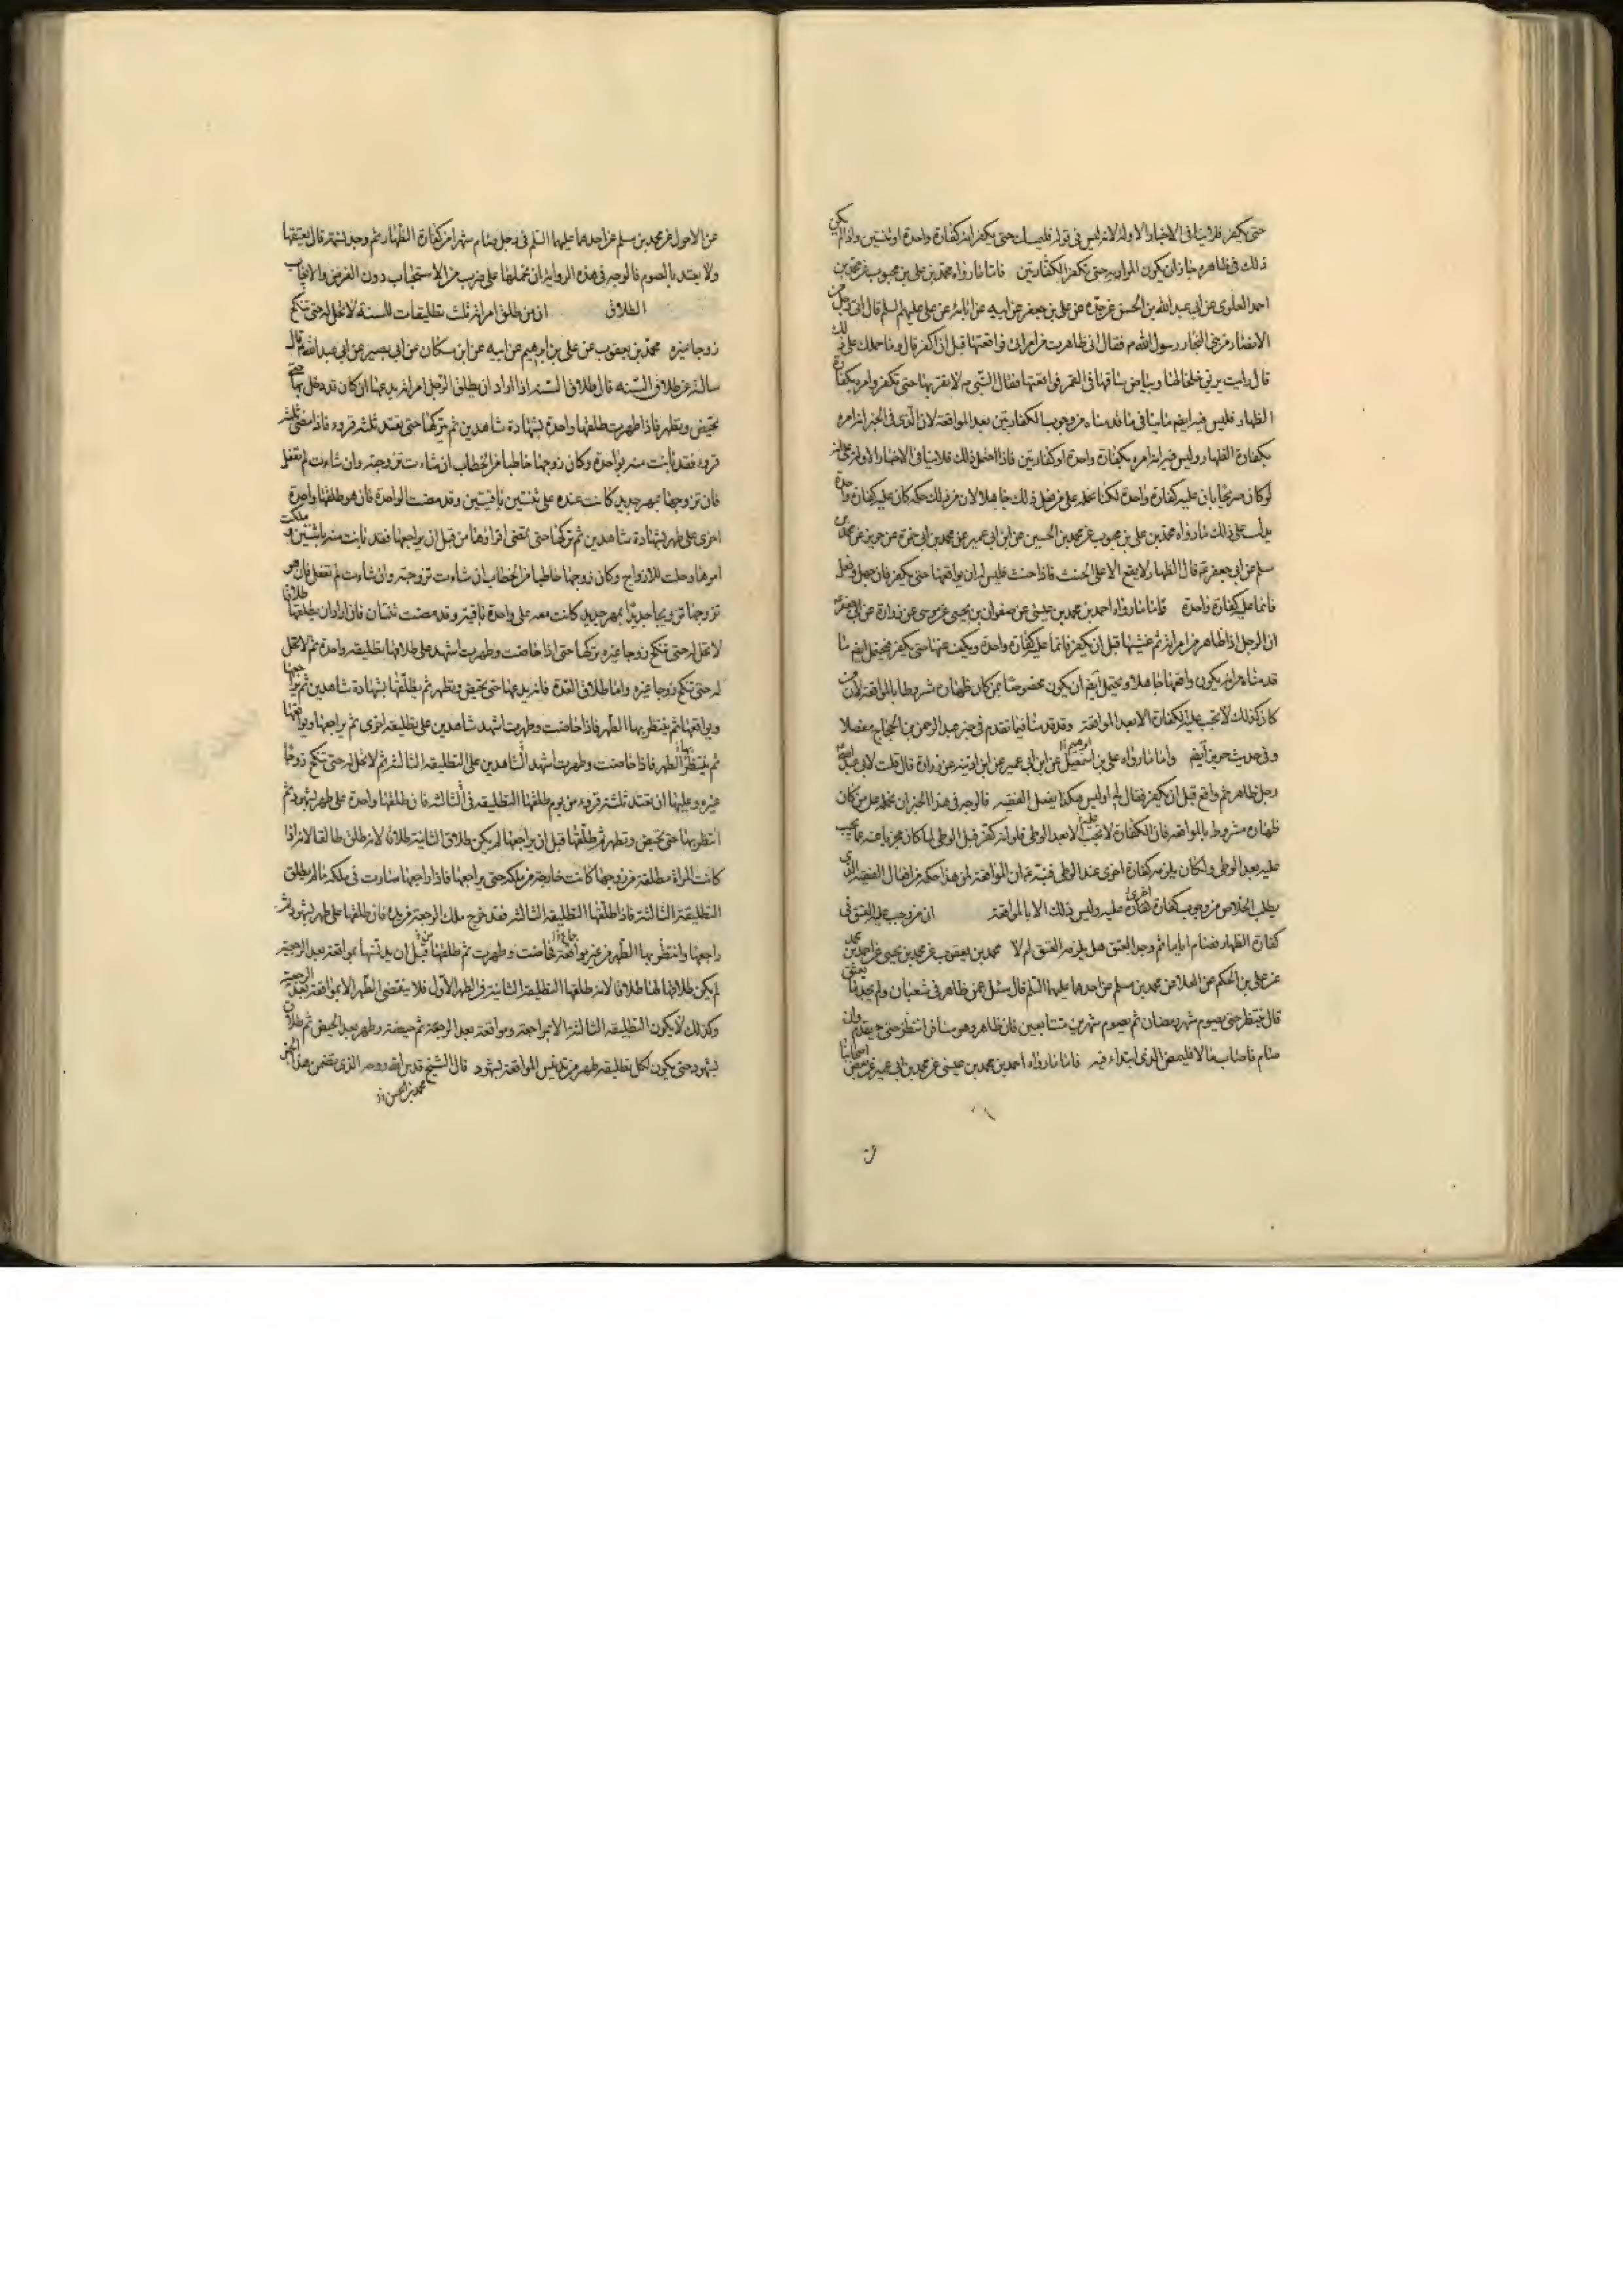 حتى يكفر فلا ينافى الاخبار الاولة لانه ليس فى قوله فليمسك حتى يكفر انه كفارة واحدة او ثنتين واذا لم يكن
ذلك فى ظاهره جاز ان يكون المراد به حتى يكفر الكفارتين فاما ما رواه محمد بن على بن محبوب عن محمد بن
احمد العلوى عن ابى عبد الله بن الحسن عن جده عن على بن جعفر عن ابيه عن ابائه عن على عليهم السلم قال اتى رجل من
الانصار من بنى النجار رسول الله ص فقال انى ظاهرت من امراتى فواقعتها قبل ان اكفر قال وما حملك على ذلك
قال رايت بريق خلخالها وبياض ساقها فى القمر فواقعتها فقال النبى ص لا تقربها حتى تكفر وامره بكفارة
الظهار فليس فيه ايضم ما ينافى ما قدمناه من وجوب الكفارتين بعد المواقعة لان الذى فى الخبر انه امره
بكفارة الظهار وليس فيه انه امره بكفارة واحدة او كفارتين فاذا احتمل ذلك فلا ينافى الاخبار الاولة على انه
لو كان صريحا بان عليه كفارة واحدة لكنا نحمله على من فعل ذلك جاهلا لان من ذلك حكمه كان عليه كفارة واحدة
يدل على ذلك ما رواه محمد بن على بن محبوب عن محمد بن الحسين عن ابن ابى عمير عن محمد بن ابى حمزة عن حريز عن محمد بن
مسلم عن ابى جعفر ع قال الظهار لا يقع الا على الحنث فاذا حنث فليس له ان يواقعها حتى يكفر فان جهل وفعل
فانما عليه كفارة واحدة فاما ما رواه احمد بن محمد بن عيسى عن صفوان بن يحيى عن موسى عن زرارة عن ابى جعفر ع
ان الرجل اذا ظاهر من امراته ثم غشيها قبل ان يكفر فانما عليه كفارة واحدة ويكف عنها حتى يكفر فيحتمل ايضم ما
قدمناه من انه يكون واقعها جاهلا ويحتمل ايضم ان يكون مخصوصا بمن كان ظهاره مشروطا بالمواقعة لان من
كان كذلك لا تجب عليه الكفارة الا بعد المواقعة وقد قدمنا فيما تقدم فى خبر عبد الرحمن بن الحجاج مفصلا
وفى حديث حريز ايضم واما ما رواه على بن اسمعيل عن ابن ابى عمير عن ابن اذينه عن زرارة قال قلت لابى عبد الله ع
رجل ظاهر ثم واقع قبل ان يكفر فقال لى اوليس هكذا يفعل الفقيه فالوجه فى هذا الخبر ان نحمله على من كان
ظهاره مشروطا بالمواقعه فان الكفارة لا تجب عليه الا بعد الوطى فلو انه كفر قبل الوطى لما كان مجزيا عنه عما يجب
عليه بعد الوطى ولكان يلزمه كفارة اخرى عند الوطى فنبه ع ان المواقعة لمن هذا حكمه من افعال الفقيه الذى
يطلب الخلاص من وجوب كفارة اخرى عليه وليس ذلك الا بالمواقعة ان من وجب عليه العتق فى
كفارة الظهار فصام اياما ثم وجد العتق هل يلزمه العتق ام لا محمد بن يعقوب عن محمد بن يحيى عن احمد بن محمد
عن على بن الحكم عن العلا عن محمد بن مسلم عن احدهما عليهما السلم قال سئل عمن ظاهر فى شعبان ولم يجد ما يعتق
قال ينتظر حتى يصوم شهر رمضان ثم يصوم شهرين متتابعين فان ظاهر وهو مسافر انتظر حتى يقدم وان
صام فاصاب مالا فليمض الذى ابتداء فيه فاما ما رواه احمد بن محمد بن عيسى عن محمد بن ابى عمير عن بعض اصحابنا
عن الاحول عن محمد بن مسلم عن احدهما عليهما السلم فى رجل صام شهرا من كفارة الظهار ثم وجد نسمة قال يعتقها
ولا يعتد بالصوم فالوجه فى هذه الرواية ان نحملها على ضرب من الاستحباب دون الفرض والايجاب
الطلاق ان من طلق امراته ثلث تطليقات للسنة لا تحل له حتى تنكح
زوجا غيره محمد بن يعقوب عن على بن ابرهيم عن ابيه عن ابن مسكان عن ابى بصير عن ابى عبد الله ع قال
سالته عن طلاق السنه قال طلاق السنه اذا اراد ان يطلق الرجل امراته يدعها ان كان قد دخل بها حتى
تحيض وتطهر فاذا طهرت طلقها واحدة بشهادة شاهدين ثم يتركها حتى تعتد ثلثة قروء فاذا مضى ثلثة
قروء فقد بانت منه بواحدة وكان زوجها خاطبا من الخطاب ان شاءت تزوجته وان شاءت لم تفعل
فان تزوجها بمهر جديد كانت عنده على ثنتين باقيتين وقد مضت الواحدة فان هو طلقها واحدة
اخرى على طهر بشهادة شاهدين ثم تركها حتى تمضى اقراؤها من قبل ان يراجعها فقد بانت منه باثنتين وملكت
امرها وحلت للازواج وكان زوجها خاطبا من الخطاب ان شاءت تزوجته وان شاءت لم تفعل فان هو
تزوجها تزويجا جديدا بمهر جديد كانت معه على واحدة باقية وقد مضت ثنتان فان اراد ان يطلقها طلاقا
لا تحل له حتى تنكح زوجا غيره تركها حتى اذا حاضت وطهرت اشهد على طلاقها تطليقه واحدة ثم لا تحل
له حتى تنكح زوجا غيره واما طلاق العدة فانه يدعها حتى تحيض وتطهر ثم يطلقها بشهادة شاهدين ثم يراجعها
ويواقعها ثم ينتظر بها الطهر فاذا حاضت وطهرت اشهد شاهدين على تطليقه اخرى ثم يراجعها ويواقعها
ثم ينتظر بها الطهر فاذا حاضت وطهرت اشهد الشاهدين على التطليقه الثالثه ثم لا تحل له حتى تنكح زوجا
غيره وعليها ان تعتد ثلثة قروء من يوم طلقها التطليقه الثالثه فان طلقها واحدة على طهر بشهود ثم
انتظر بها حتى تحيض وتطهر ثم طلقها قبل ان يراجعها لم يكن طلاق الثانية طلاقا لانه طلق طالقا لانه اذا
كانت المراة مطلقة من زوجها كانت خارجة من ملكه حتى يراجعها فاذا راجعها صارت فى ملكه ما لم يطلق
التطليقة الثالثة فاذا طلقها التطليقه الثالثه فقد خرج ملك الرجعة من يده فان طلقها على طهر بشهود ثم
راجعها وانتظر بها الطهر من غير مواقعة فحاضت وطهرت ثم طلقها قبل ان يدنسها بمواقعة بعد الرجعة
لم يكن طلاقه لها طلاقا لانه طلقها التطليقة الثانية فى الطهر الاول فلا ينقضى الطهر الا بمواقعة بعد الرجعة
وكذلك لا يكون التطليقه الثالثه الا بمراجعة ومواقعة بعد الرجعة ثم حيضة وطهر بعد الحيض ثم طلاق
بشهود حتى يكون لكل تطليقه طهر من تدنيس المواقعة بشهود قال الشيخ قدس الله روحه الذى تضمن هذا الخبر
محمد بن الحسن